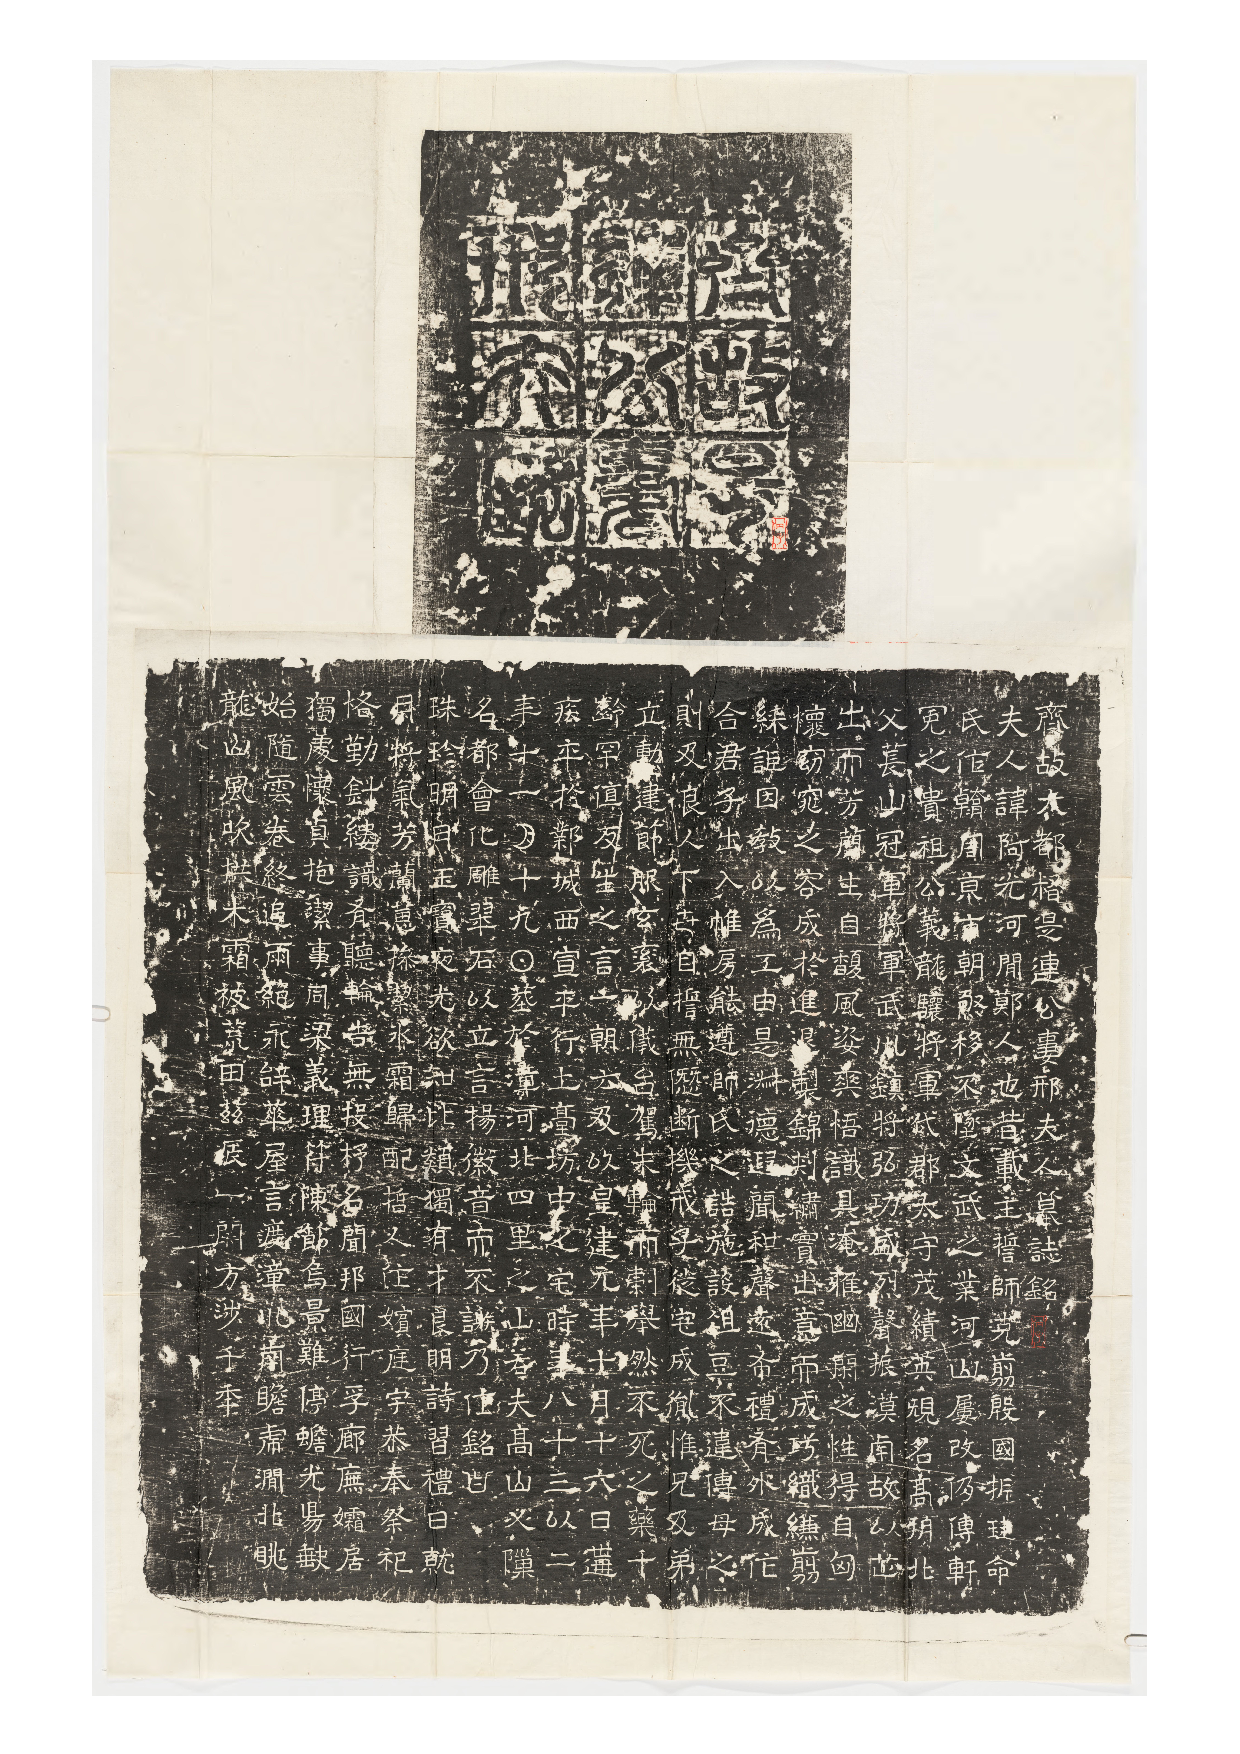 齊故是
連公妻
邢夫
齊故大都督是連公妻邢夫人墓誌銘
夫人諱阿光河間鄚人也昔載主誓師克翦殷國拆珪命
氏作翰周京市朝驟移不墜文武之業河山屢改仍傳軒
冕之貴祖公義龍驤將軍代郡太守茂績英規名高朔北
父萇山冠軍將軍武川鎮將弘功盛烈聲振漠南故以芷
出而芳蘭生自馥風姿爽悟識具淹雅幽閑之性得自匈
懷窈窕之容成於進退製錦刺繡實出意而成巧織縑翦
綵詎因教以爲工由是淋德遐聞和聲遠布禮有外成作
合君子出入帷房能遵師氏之誥施設俎豆不違傅母之
則及良人下世自誓無愆斷機戒子徙宅成胤惟兄及弟
立勳建節服玄袞以儀台駕朱輪而刺舉然不死之藥千
齡罕值友生之言一朝奄及以皇建元年十月十六日遘
疾卒於鄴城西宣平行土臺坊中之宅時年八十三以二
年十一月十九日葬於漳河北四里之山夫高山必隰
名都會化雕翠石以立言揚徽音而不誤乃作銘曰
珠珍明月玉寶夜光欲知比類獨有才良明詩習禮日就
月將氣芳蘭蕙操潔氷霜歸配哲人作嬪庭宇恭奉祭祀
恪勤針縷識有聽輪告無投杼名聞邦國行孚廊廡孀居
獨處懷貞抱潔事同梁義理符陳節烏景難停蟾光易缺
始隨雲卷終追雨絕永辭華屋言漳北南瞻澗北眺
龍山風吹拱木霜被荒田茲扃一閟方涉千年